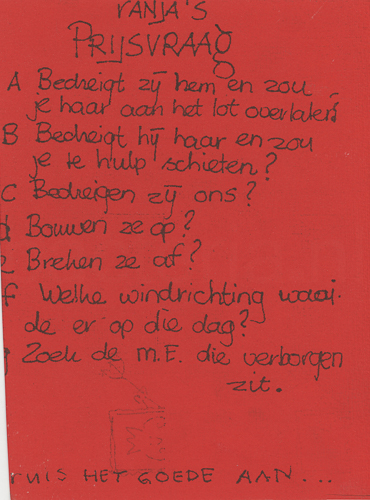 TANJA'S
PRIJSVRAAG
A Bedreigt zij hem en zou
je haar aan het lot overlaten?
B Bedreigt hij haar en zou
je te hulp schieten?
C Bedreigen zij ons?
d Bouwen ze op?
e Breken ze af?
f Welke windrichting waai-
de er op die dag?
g Zoek de M.E. die verborgen
zit.
KRUIS HET GOEDE AAN...